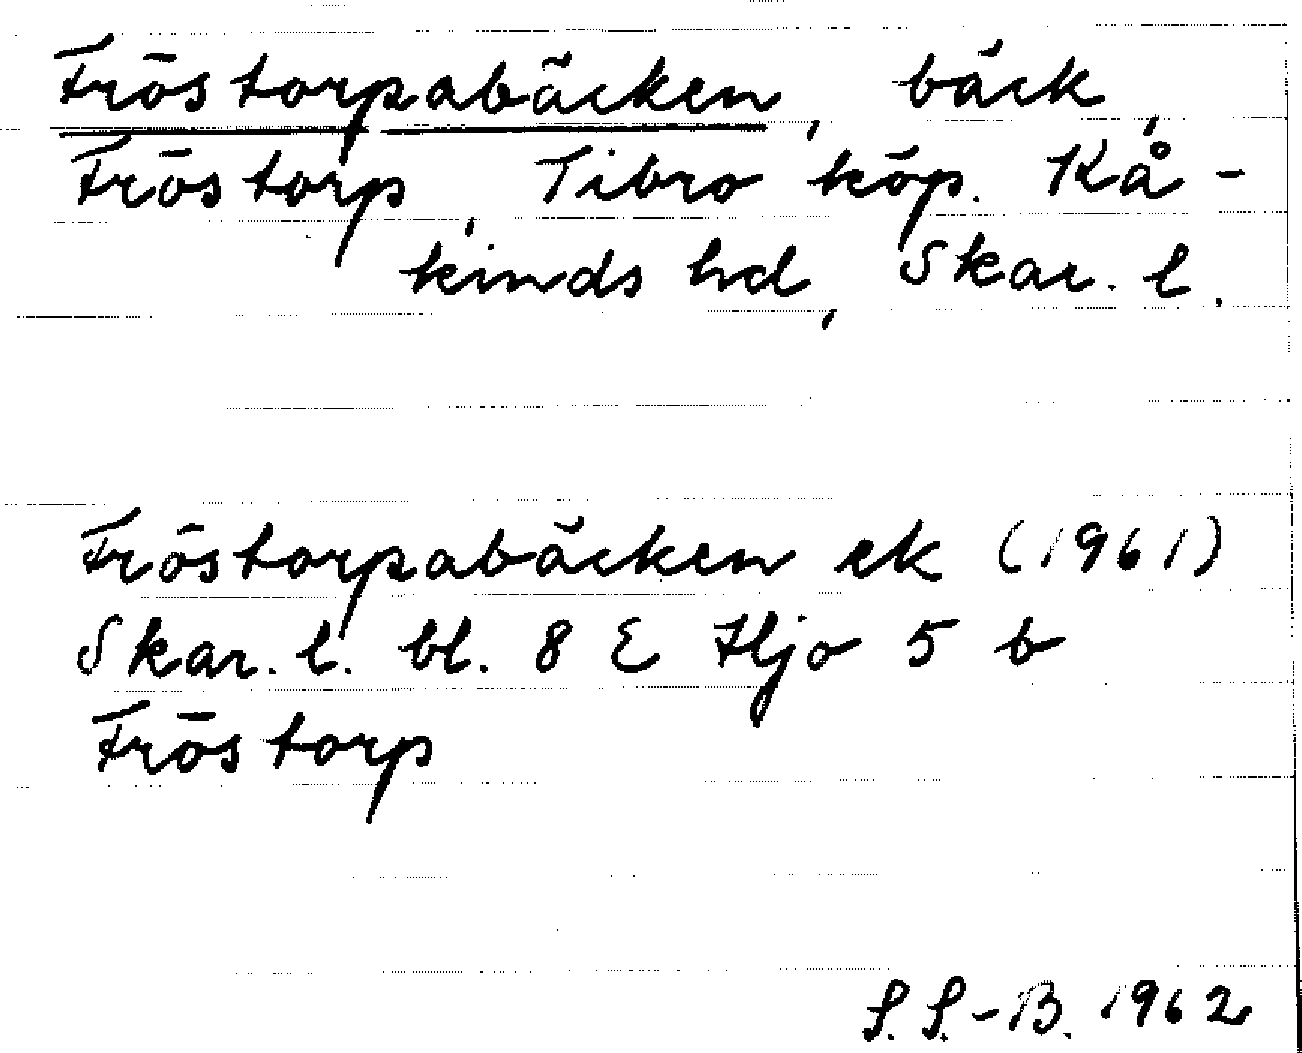 Fröstorpabäcken, bäck,
Fröstorp, Tibro köp. Kå-
kinds hd, Skar. l.
Fröstorpabäcken ek (1961)
Skar. l. bl. 8 E Hjo 5 b
Fröstorp
S. S.-B. 1962